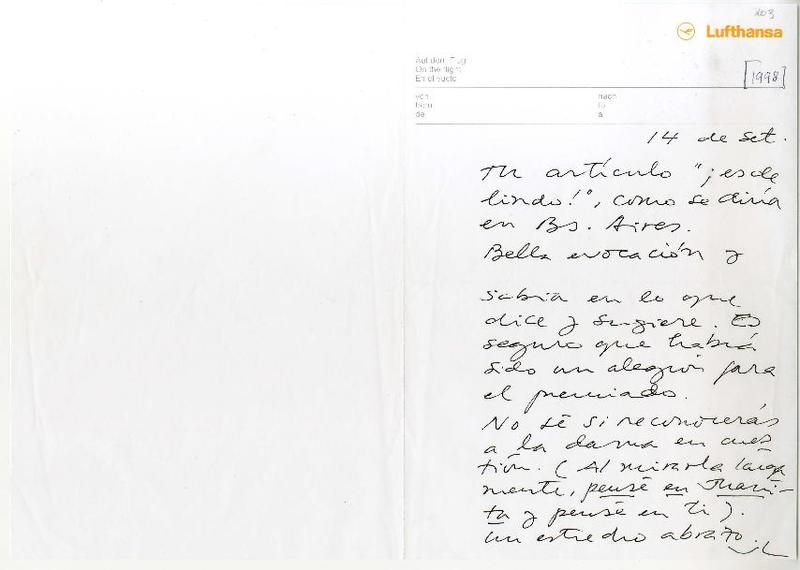 203
Lufthansa
Auf dem Flug
On the flight
En el vuelo
[1998]
von nach
from to
de a
14 de set.
Tu artículo "¡es de
lindo!", como se diría
en Bs. Aires.
Bella evocación y
sabia en lo que
dice y sugiere. Es
seguro que habrá
sido un alegrón para
el premiado.
No sé si reconocerás
a la dama en cues-
tión. (Al mirarla larga-
mente, pensé en Juani-
ta y pensé en ti).
Un estrecho abrazo,